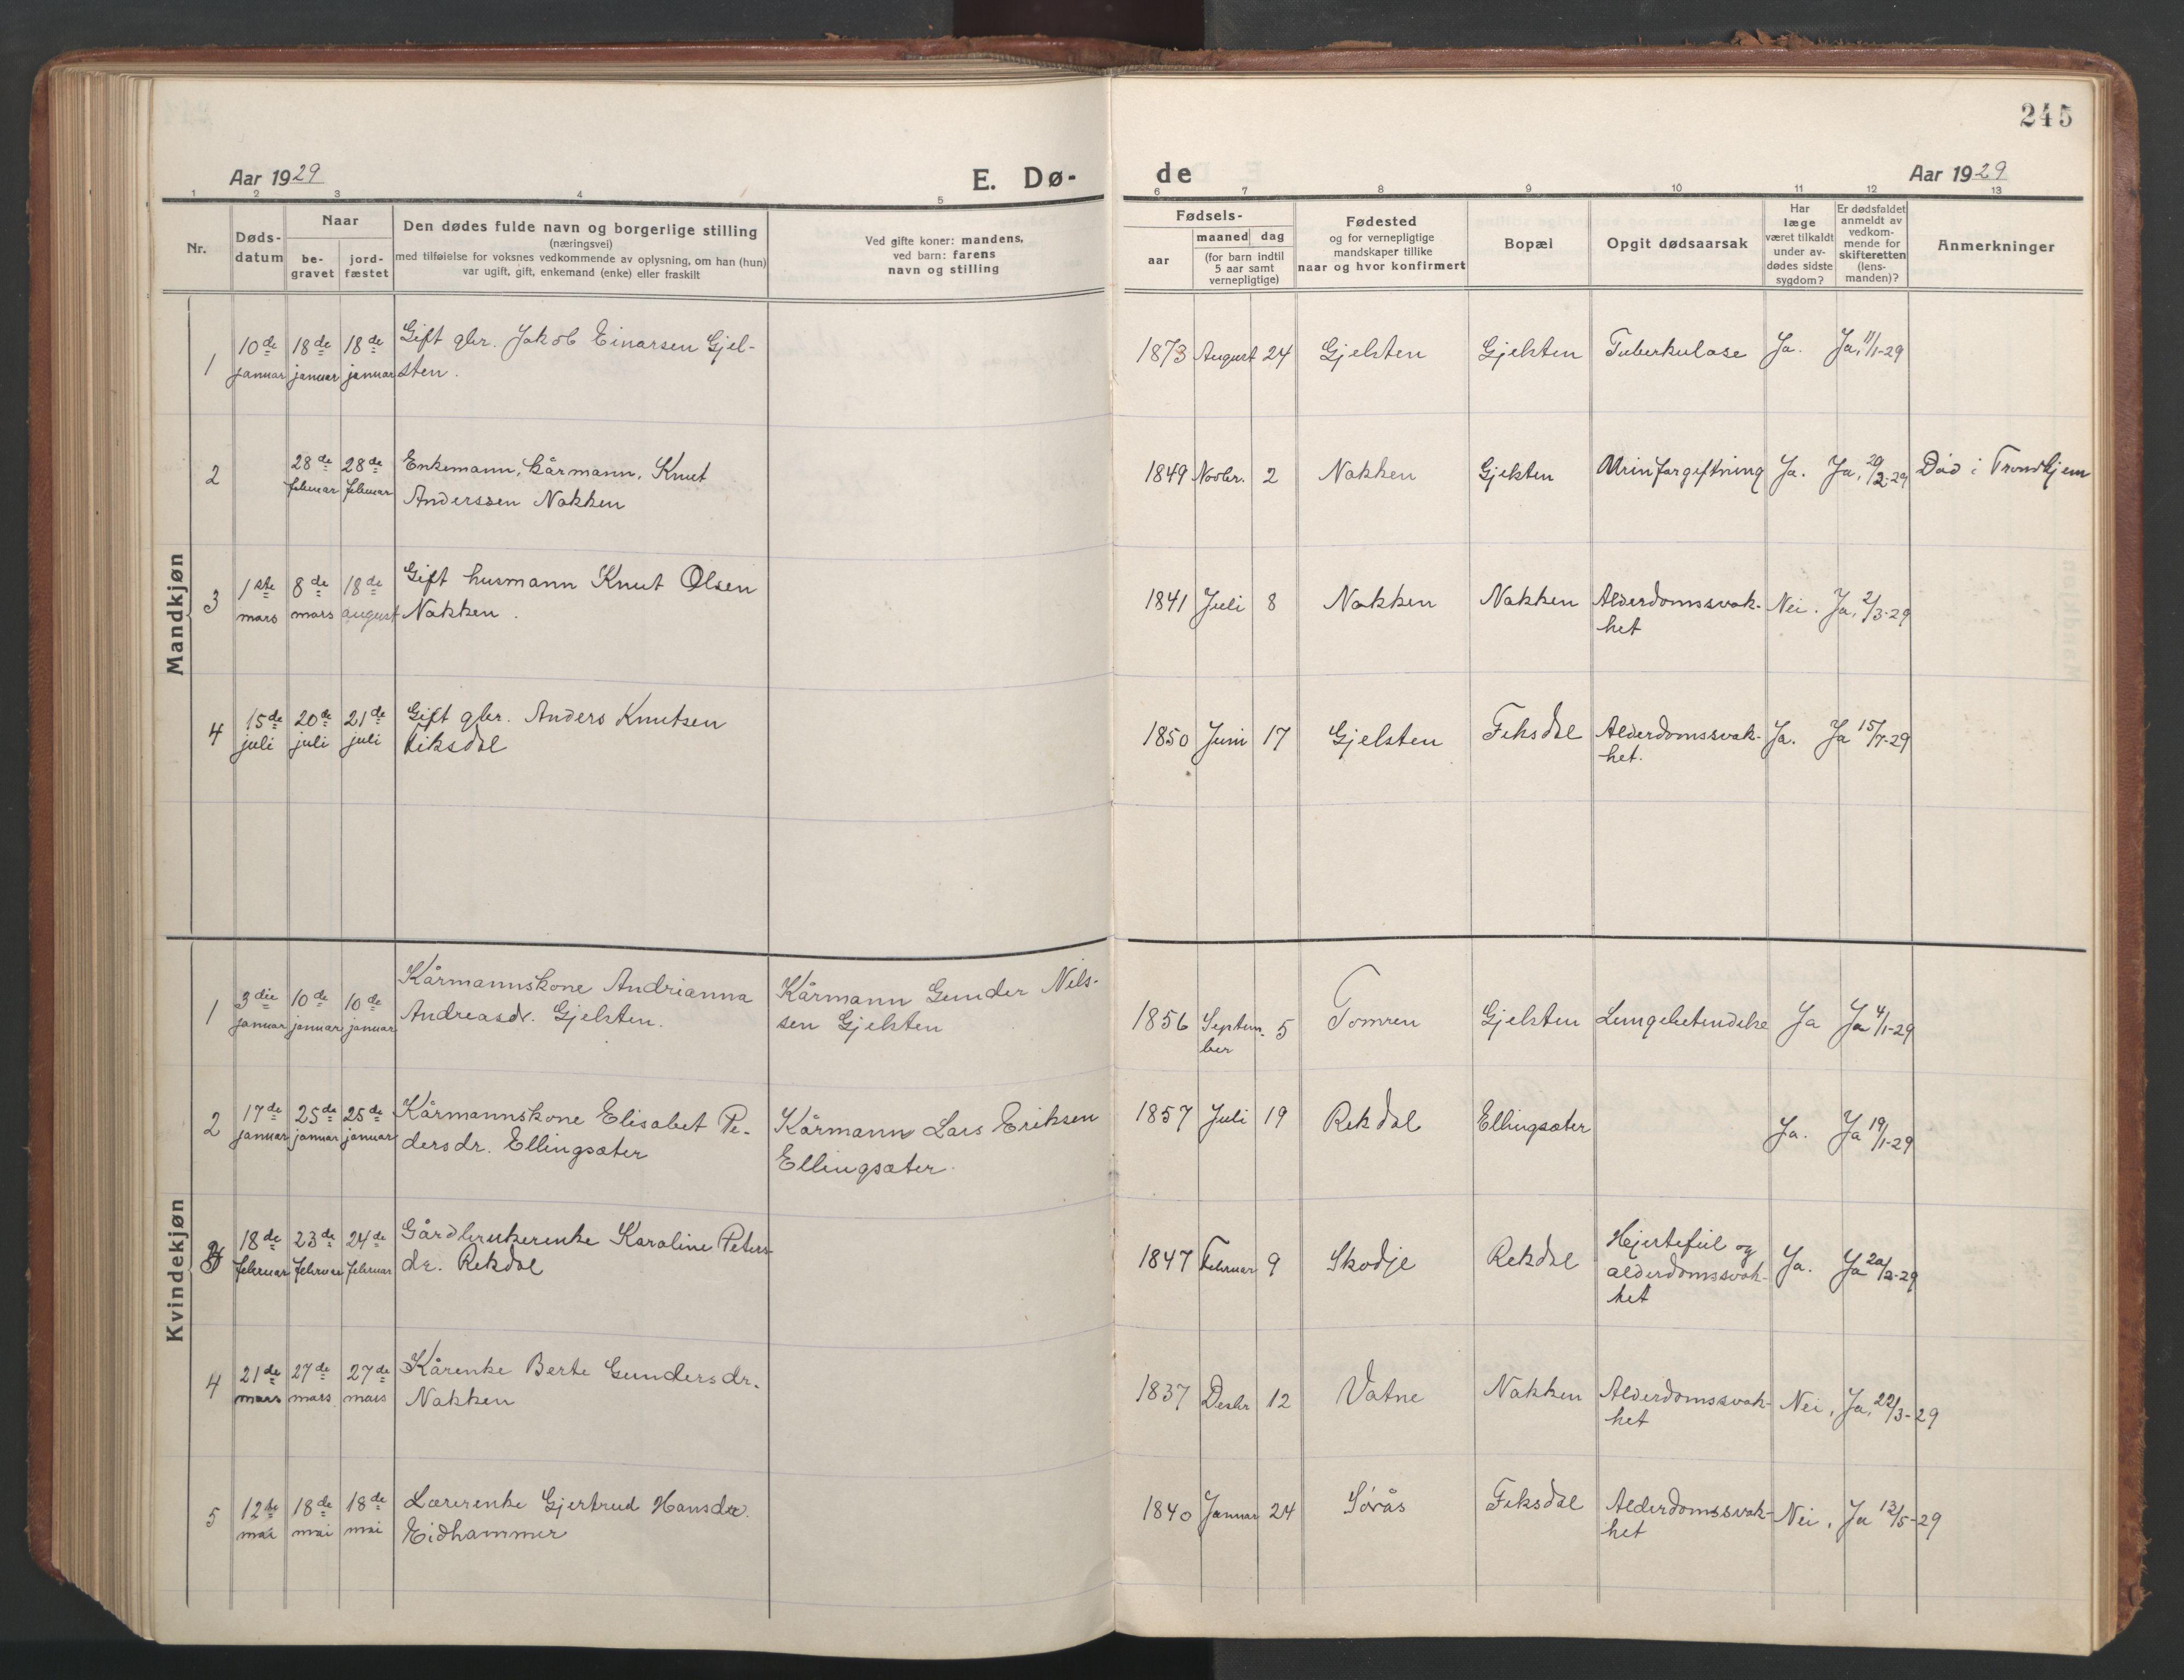 245
Aar 1929
E. Dø-
de
Aar 1929
1 2 3 4 5 6 7 8 9 10 11 12 13
Nr.
Døds-
datum
Naar
be-
gravet
jord-
fæstet
Den dødes fulde navn og borgerlige stilling
(næringsvei)
med tilføielse for voksnes vedkommende av oplysning, om han (hun)
var ugift, gift, enkemand (enke) eller fraskilt
Ved gifte koner: mandens,
ved barn: farens
navn og stilling
Fødsels-
aar
maaned dag
(for barn indtil
5 aar samt
vernepligtige)
Fødested
og for vernepligtige
mandskaper tillike
naar og hvor konfirmert
Bopæl
Opgit dødsaarsak
Har
læge
været tilkaldt
under av-
dødes sidste
sygdom?
Er dødsfaldet
anmeldt av
vedkom-
mende for
skifteretten
(lens-
manden)?
Anmerkninger
Mandkjøn
1
10de
januar
18de
januar
18de
januar
Gift gbr. Jakob Einarsen Gjel-
sten.
1873 August 24 Gjelsten Gjelsten Tuberkulose Ja. Ja, 11/1-29
2
28de
februar
28de
februar
Enkemann, kårmann, Knut
Anderssen Nakken
1849 Novbr. 2 Nakken Gjelsten Urinforgiftning Ja. Ja, 20/2-29 Død i Trondhjem
3
1ste
mars
8de
mars
18de
august
Gift husmann Knut Olsen
Nakken.
1841 Juli 8 Nakken Nakken Alderdomssvak-
het
Nei. Ja, 2/3-29
4
15de
juli
20de
juli
21de
juli
Gift gbr. Anders Knutsen
Fiksdal
1850 Juni 17 Gjelsten Fiksdal Alderdomssvak-
het.
Ja. Ja 15/7-29
Kvindekjøn
1
3die
januar
10de
januar
10de
januar
Kårmannskone Andrianna
Andreasdr. Gjelsten.
Kårmann Gunder Nils-
sen Gjelsten
1856 Septem-
ber
5 Tomren Gjelsten Lungebetendelse Ja Ja 4/1-29
2
17de
januar
25de
januar
25de
januar
Kårmannskone Elisabet Pe-
dersdr. Ellingsæter
Kårmann Lars Eriksen
Ellingsæter.
1857 Juli 19 Rekdal Ellingsæter Ja. Ja 19/1-29
3
18de
februar
23de
februar
24de
februar
Gårdbrukerenke Karoline Peters-
dr. Rekdal
1847 Februar 9 Skodje Rekdal Hjertefeil og
alderdomssvak-
het
Ja. Ja 20/2-29
4
21de
mars
27de
mars
27de
mars
Kårenke Berte Gundersdr.
Nakken
1837 Desbr 12 Vatne Nakken Alderdomssvak-
het
Nei. Ja, 22/3-29
5
12te
mai
18de
mai
18de
mai
Lærerenke Gjertrud Hansdr.
Eidhammer
1840 Januar 24 Sørås Fiksdal Alderdomssvak-
het
Nei. Ja 13/5-29